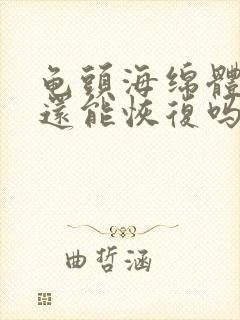 龟頭海绵體
還能恢復吗
曲哲涵